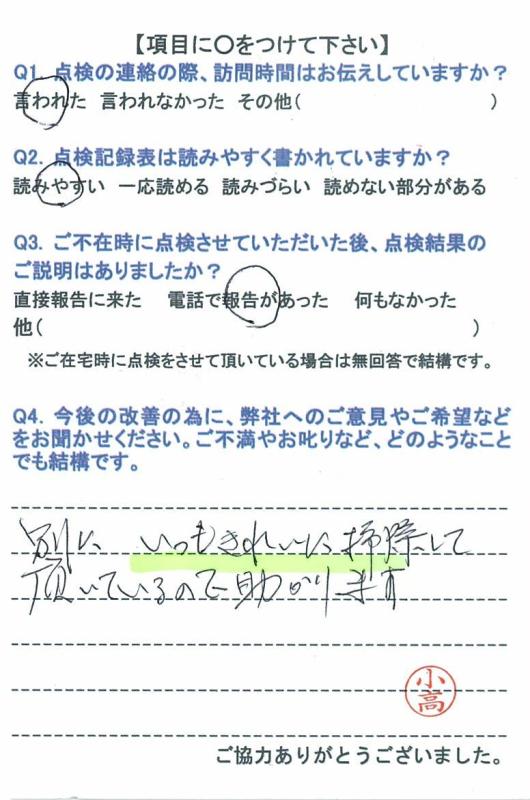 【項目に〇をつけて下さい】
Q1. 点検の連絡の際、訪問時間はお伝えしていますか？
言われた 言われなかった その他( )
Q2. 点検記録表は読みやすく書かれていますか？
読みやすい 一応読める 読みづらい 読めない部分がある
Q3. ご不在時に点検させていただいた後、点検結果の
ご説明はありましたか？
直接報告に来た 電話で報告があった 何もなかった
他( )
※ご在宅時に点検をさせて頂いている場合は無回答で結構です。
Q4. 今後の改善の為に、弊社へのご意見やご希望など
をお聞かせください。ご不満やお叱りなど、どのようなこと
でも結構です。
別に いつもきれいに掃除して
頂いているので助かります
小高
ご協力ありがとうございました。